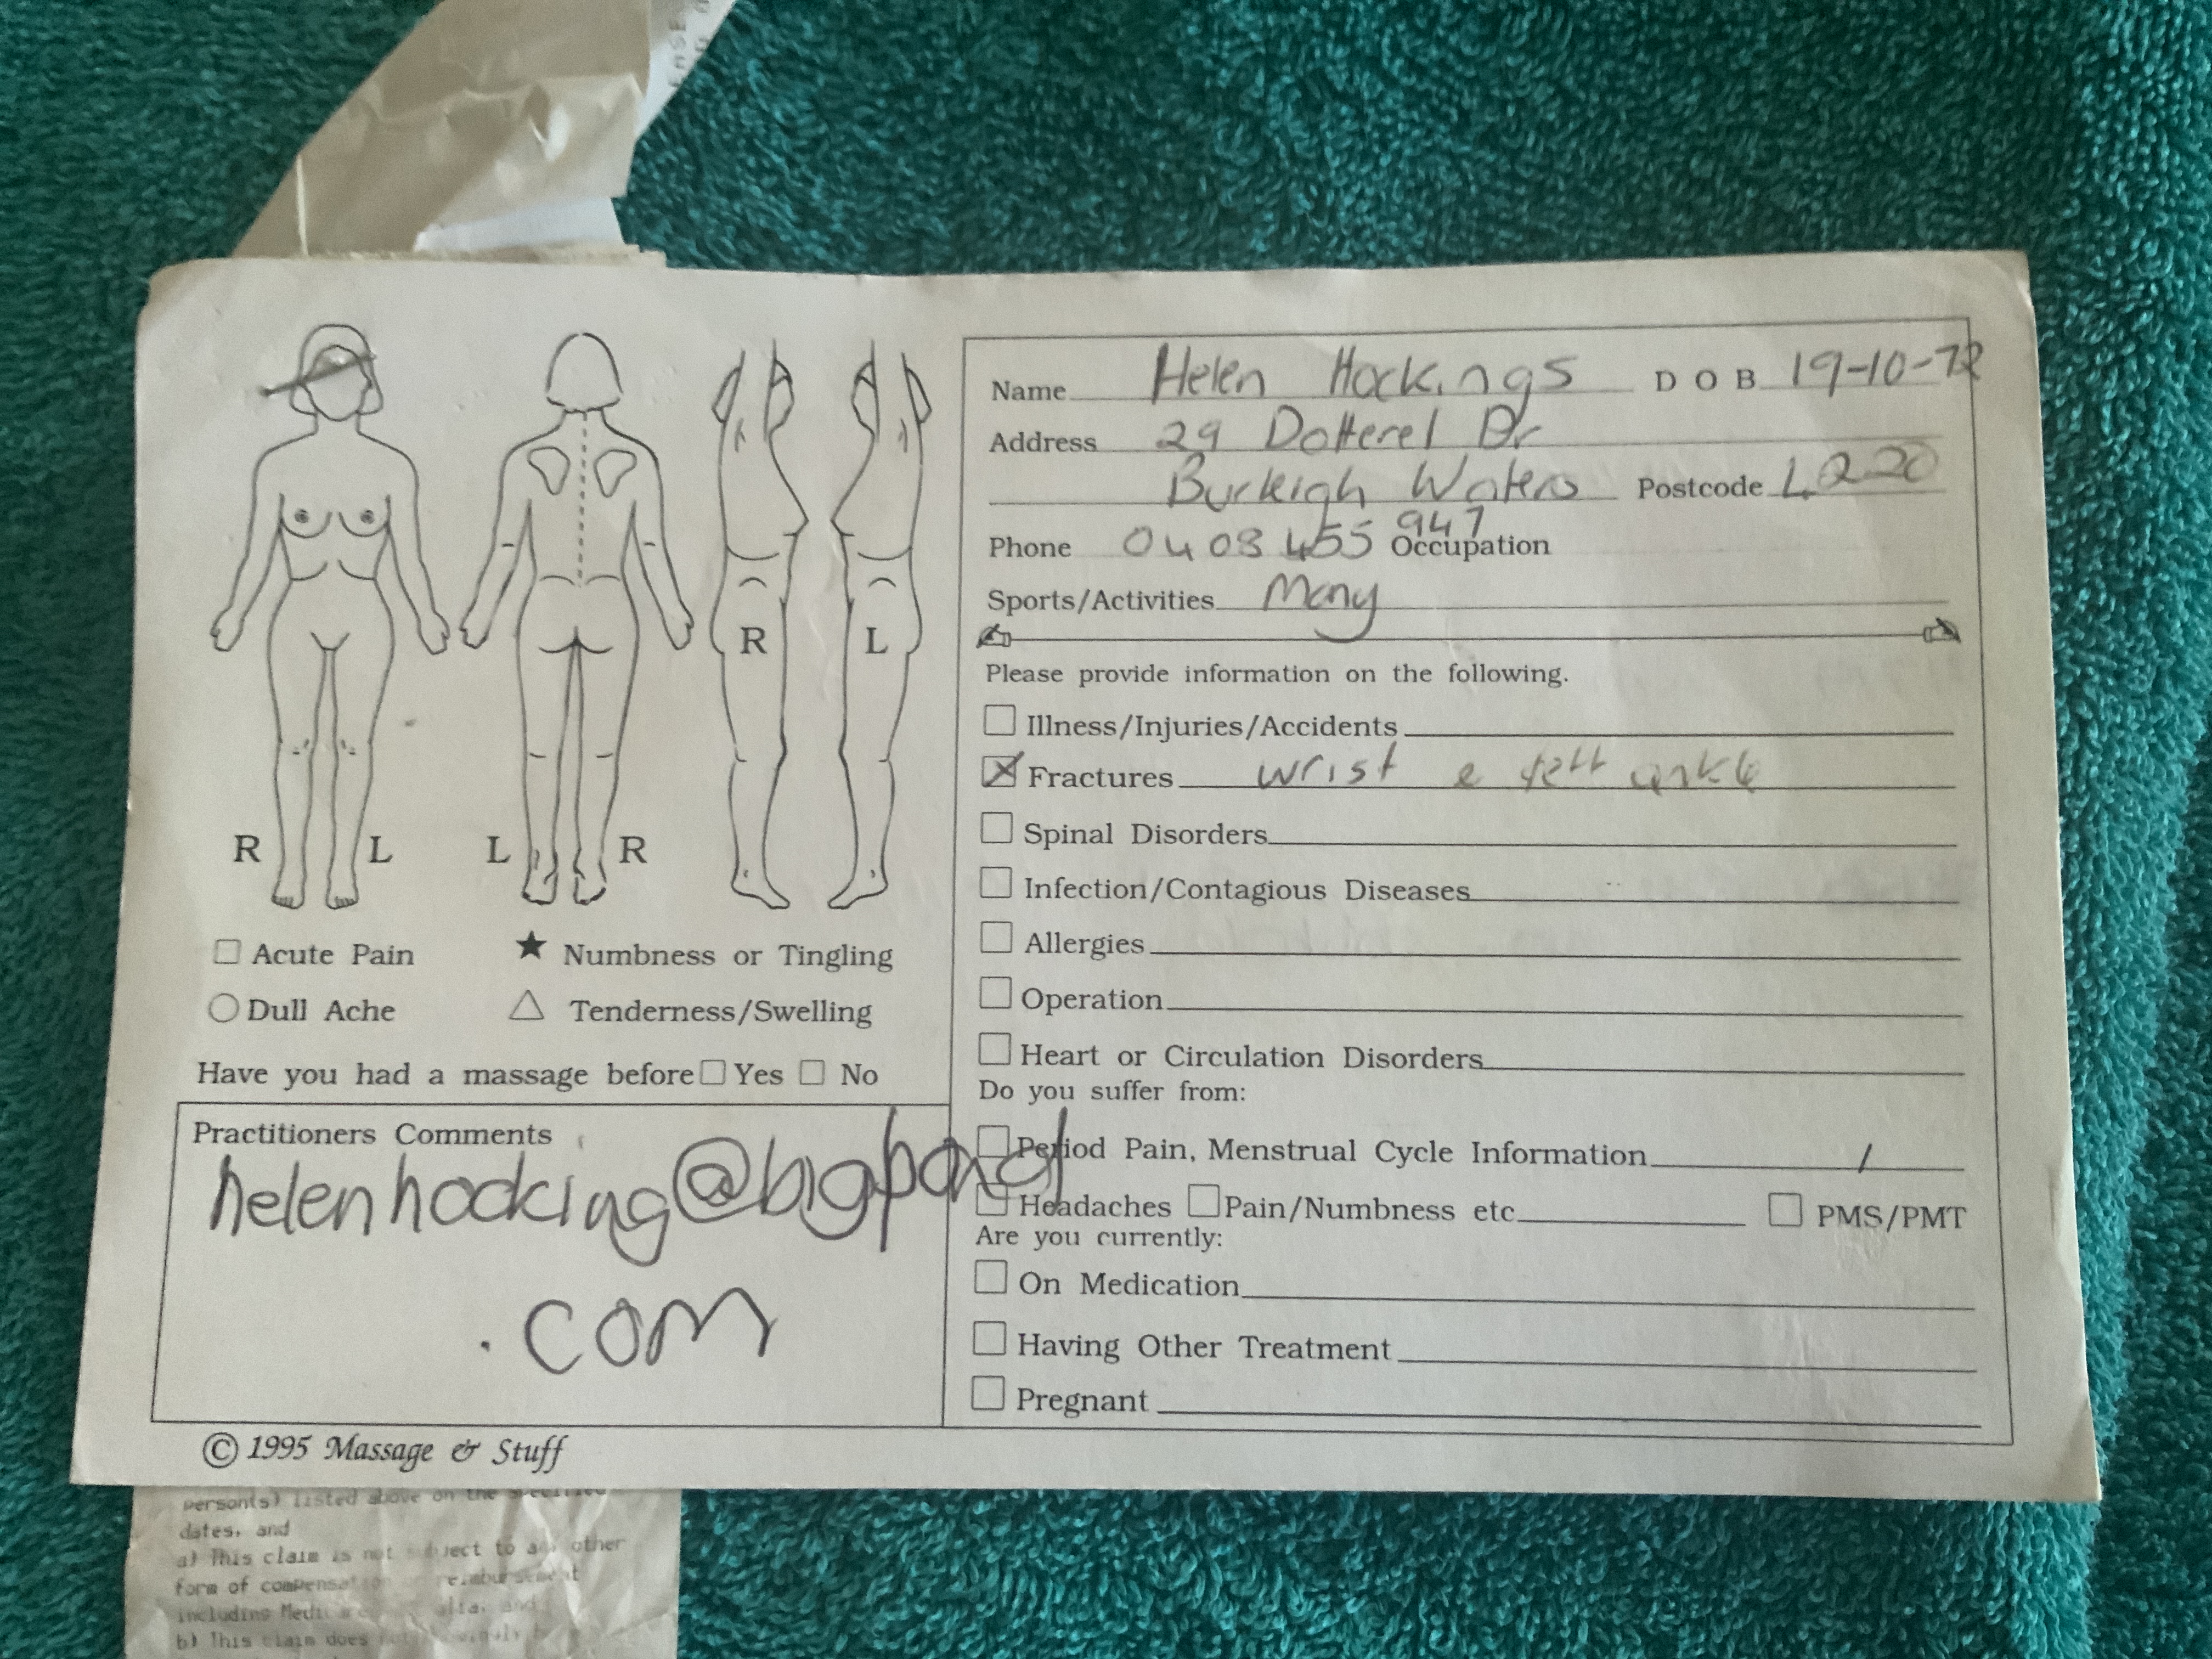 Name Helen Hockings D O B 19-10-72
Address 29 Dotterel Dr
Burleigh Waters Postcode 4220
Phone 0408 455 947 Occupation
Sports/Activities Many
Please provide information on the following.
Illness/Injuries/Accidents
Fractures wrist
Spinal Disorders
Infection/Contagious Diseases
Allergies
Operation
Heart or Circulation Disorders
Do you suffer from:
Period Pain, Menstrual Cycle Information /
Headaches Pain/Numbness etc PMS/PMT
Are you currently:
On Medication
Having Other Treatment
Pregnant
R L
R L L R
Acute Pain ★ Numbness or Tingling
Dull Ache Tenderness/Swelling
Have you had a massage before Yes No
Practitioners Comments
helenhocking@bigpond
.com
© 1995 Massage & Stuff
person(s) listed above on the specified
dates, and
a) This claim is not subject to any other
form of compensation reimbursement
including
b) This claim does